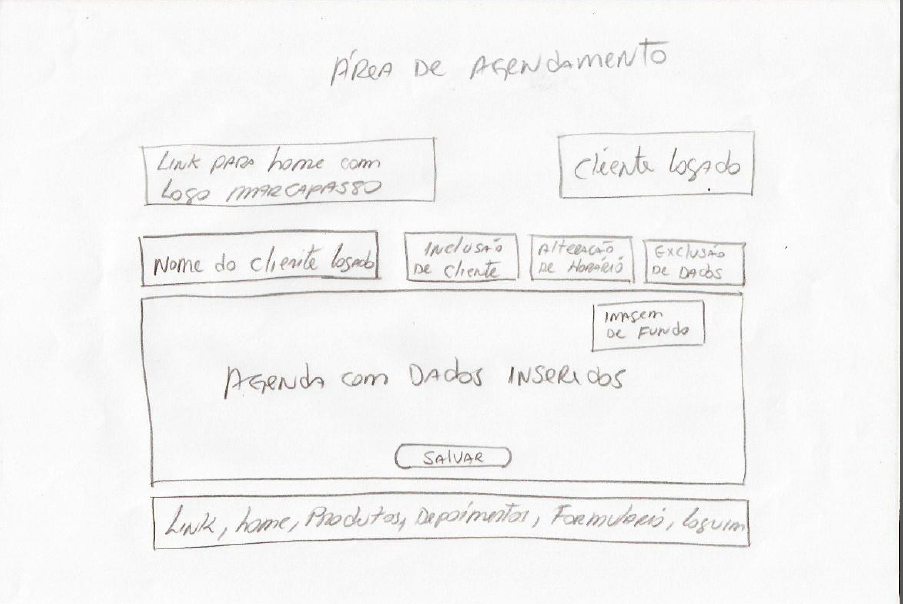 ÁREA DE AGENDAMENTO
LINK PARA home com
Logo MARCAPASSO
Cliente Logado
Nome do cliente logado
INCLUSÃO
DE Cliente
AlTERAÇÃO
DE HORÁRIO
EXCLUSÃO
DE DADOS
IMAGEM
DE FUNDO
AGENDA com DADOS INSERIDOS
SALVAR
LINK, home, Produtos, Depoimentos, Formulario, loguim